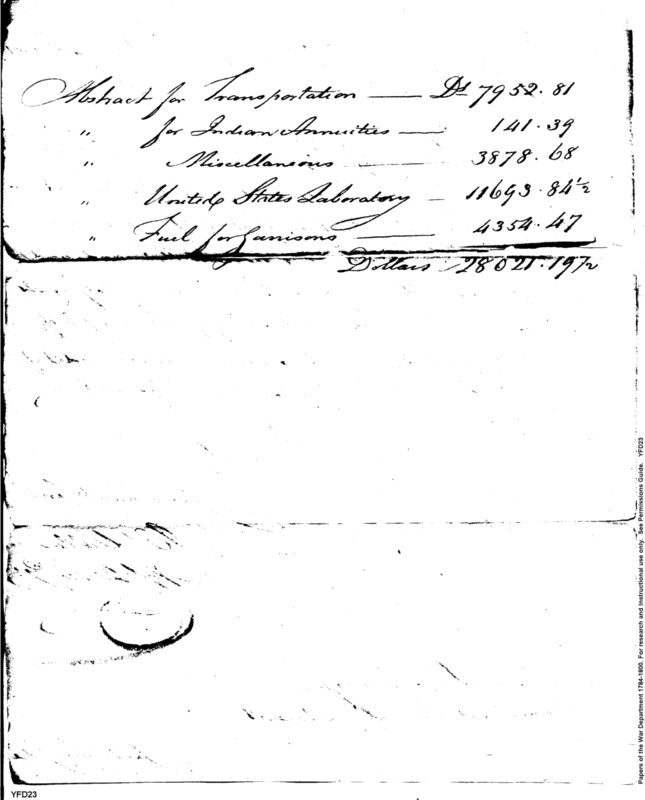 Abstract for Transportation — Ds 7952.81
" for Indian Annuities — 141.39
" Miscellaneous — 3878.68
" United States Laboratory — 11693.84½
" Fuel for Garrisons — 4354.47
Dollars 28021.19½
Papers of the War Department 1784-1800. For research and instructional use only. See Permissions Guide. YFD23
YFD23